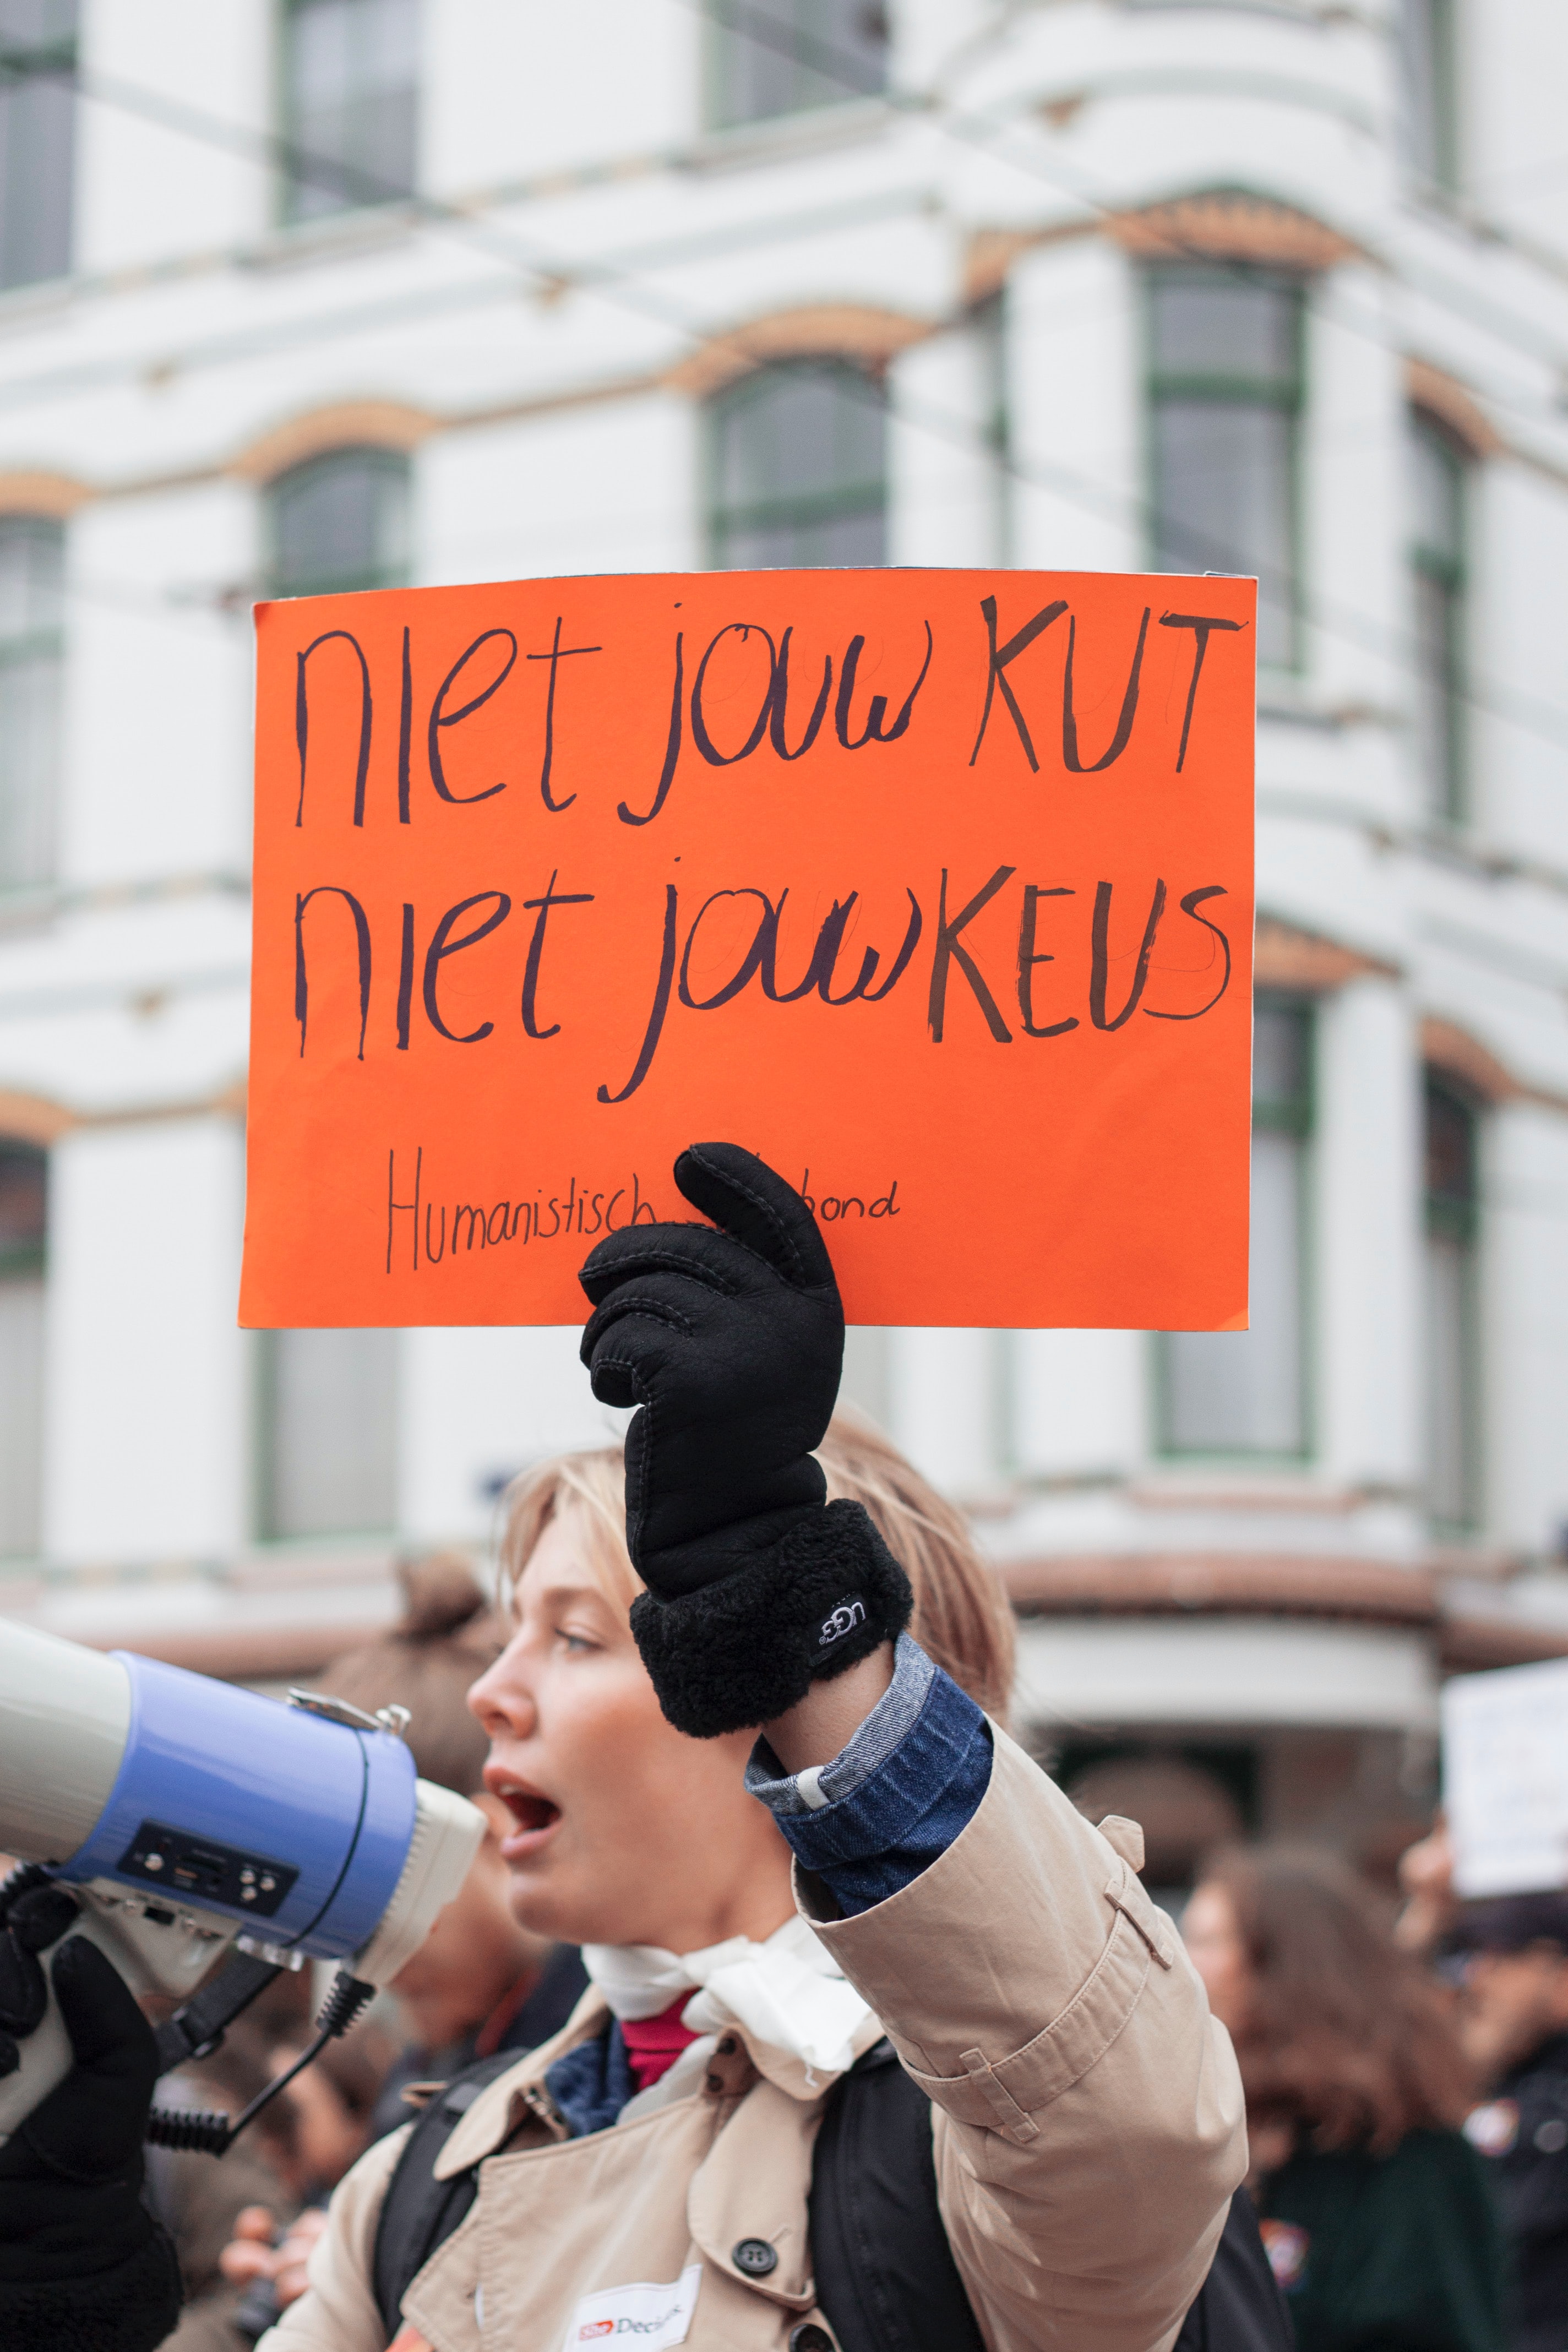 niet jouw KUT
niet jouw KEUS
Humanistisch bond
UGG
She Deci